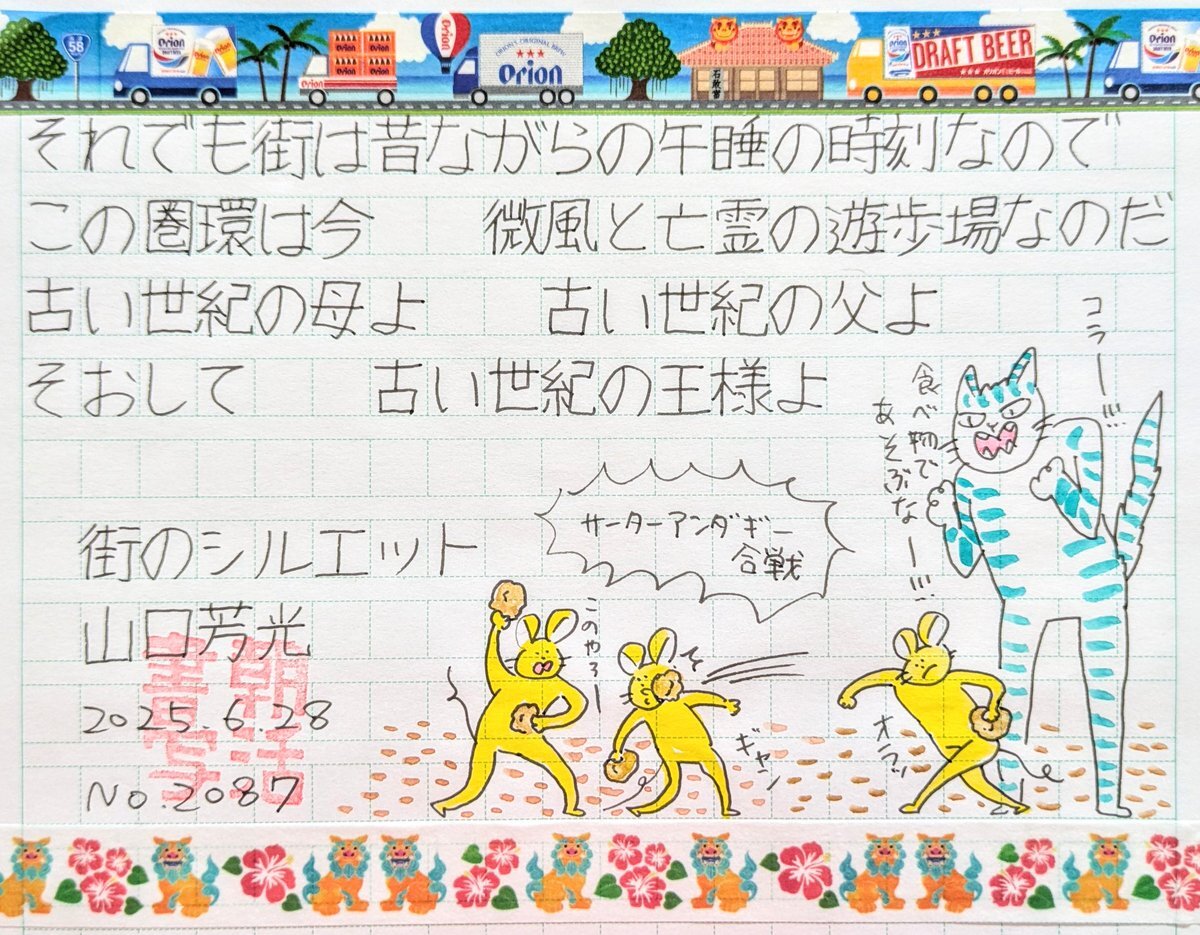 58
Orion
Orion
ORION'S ORIGINAL BREW
Orion
石敢當
Orion
DRAFT BEER
Orion
それでも街は昔ながらの午睡の時刻なので
この圏環は今　微風と亡霊の遊歩場なのだ
古い世紀の母よ　古い世紀の父よ
そおして　古い世紀の王様よ
コラー!!!
食べ物で
あそぶなー!!!
サーターアンダギー
合戦
街のシルエット
山口芳光
2025.6.28
No.2087
朝活
書写
このやろー
ギャン
オラッ